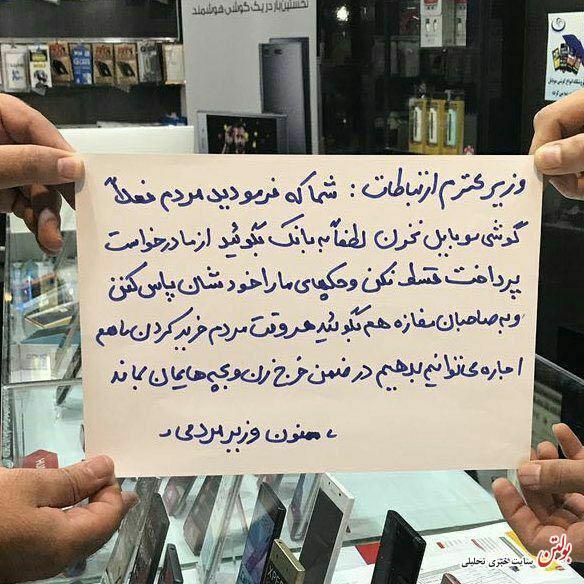 نخستین بار در یک گوشی هوشمند
وزیر محترم ارتباطات : شما که فرمودید مردم فعلاً
گوشی موبایل نخرن لطفاً به بانک بگوئید از ما درخواست
پرداخت قسط نکن و چکهای ما را خودشان پاس کنن
و به صاحبان مغازه هم بگوئید هر وقت مردم خرید کردن ما هم
اجاره می توانیم بدهیم در ضمن خرج زن و بچه هایمان بماند
، ممنون وزیر مردمی ،
بولتن
سایت خبری تحلیلی